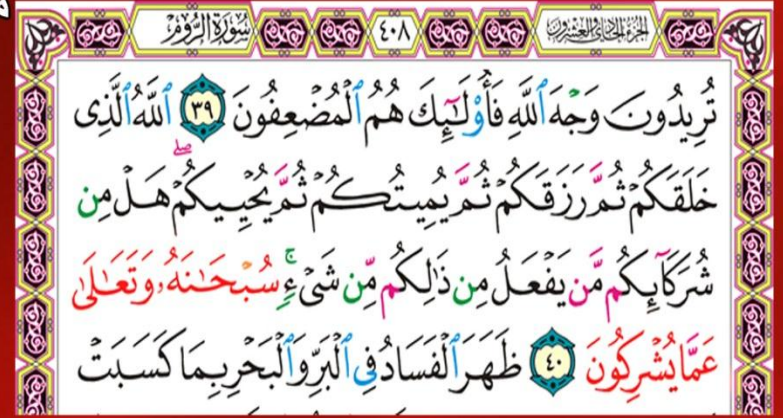 سُورَةُ الرُّومِ ٤٠٨ الجزء الحادي والعشرون
تُرِيدُونَ وَجْهَ ٱللَّهِ فَأُو۟لَـٰٓئِكَ هُمُ ٱلْمُضْعِفُونَ ٣٩ ٱللَّهُ ٱلَّذِى
خَلَقَكُمْ ثُمَّ رَزَقَكُمْ ثُمَّ يُمِيتُكُمْ ثُمَّ يُحْيِيكُمْ ۖ هَلْ مِن
شُرَكَآئِكُم مَّن يَفْعَلُ مِن ذَٰلِكُم مِّن شَىْءٍ ۚ سُبْحَـٰنَهُۥ وَتَعَـٰلَىٰ
عَمَّا يُشْرِكُونَ ٤٠ ظَهَرَ ٱلْفَسَادُ فِى ٱلْبَرِّ وَٱلْبَحْرِ بِمَا كَسَبَتْ